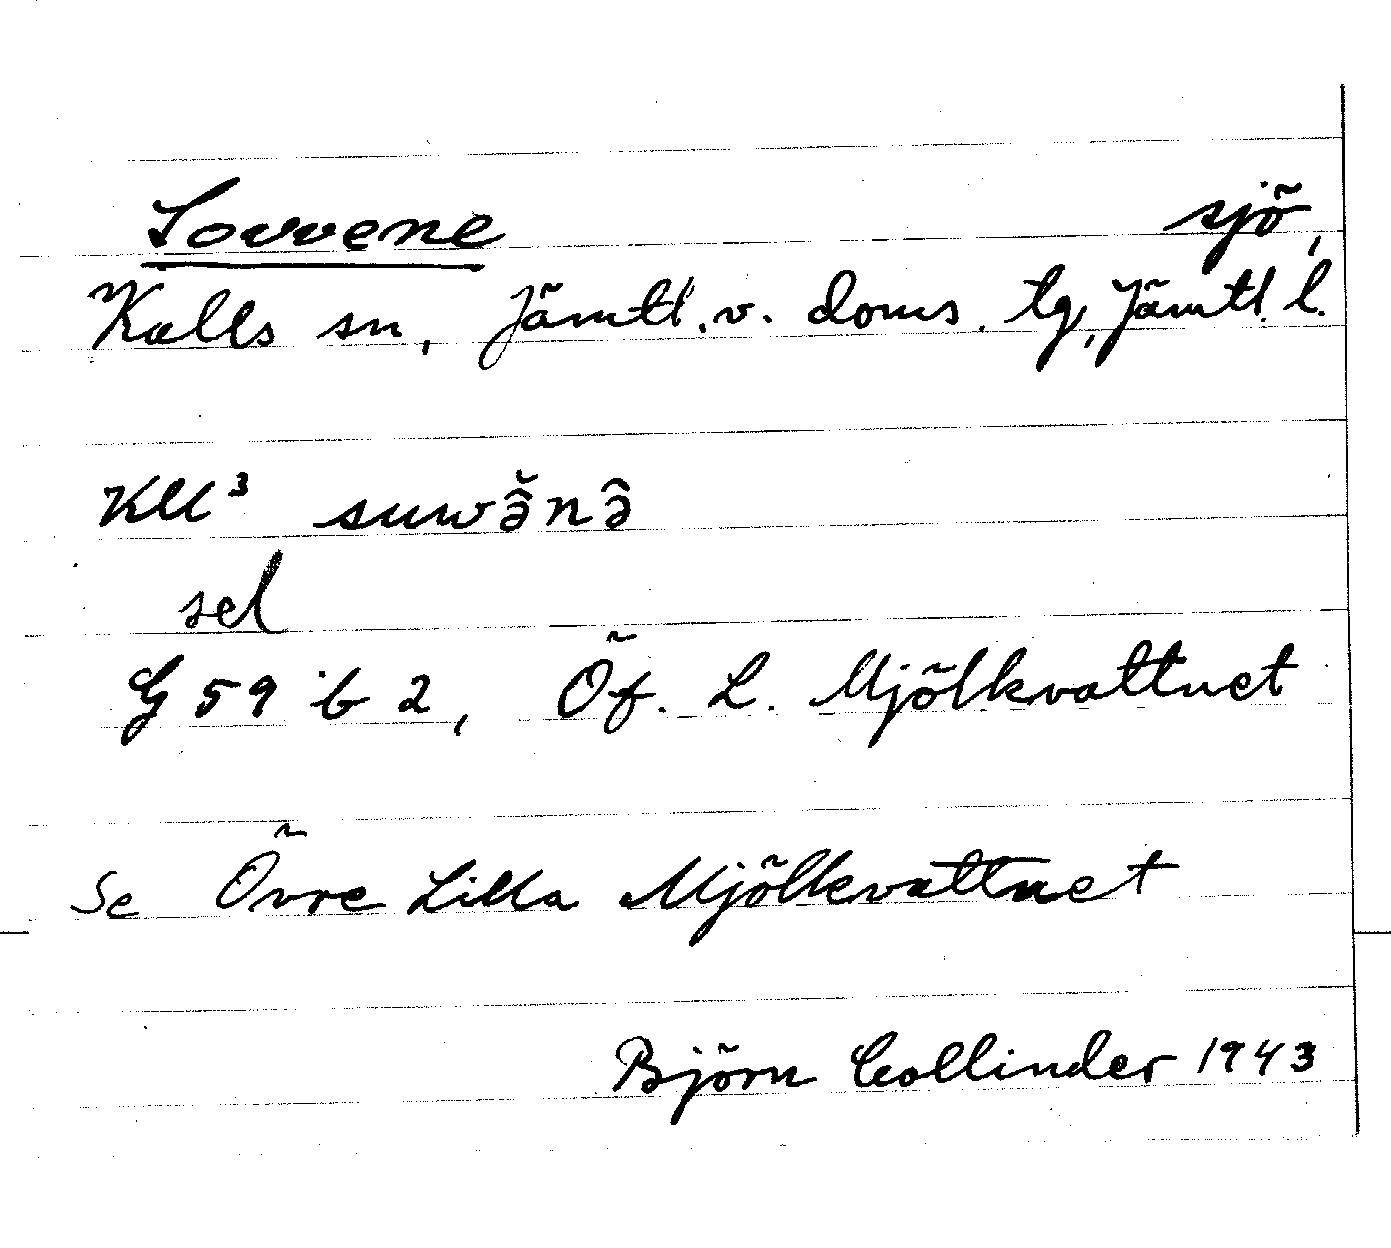 Sovvene sjö,
Kalls sn, Jämtl. v. doms. tg, Jämtl. l.
Kll³ suwə̂̆nə̂
sel
G 59 b 2, Öf. L. Mjölkvattnet
Se Övre Lilla Mjölkvattnet
Björn Collinder 1943